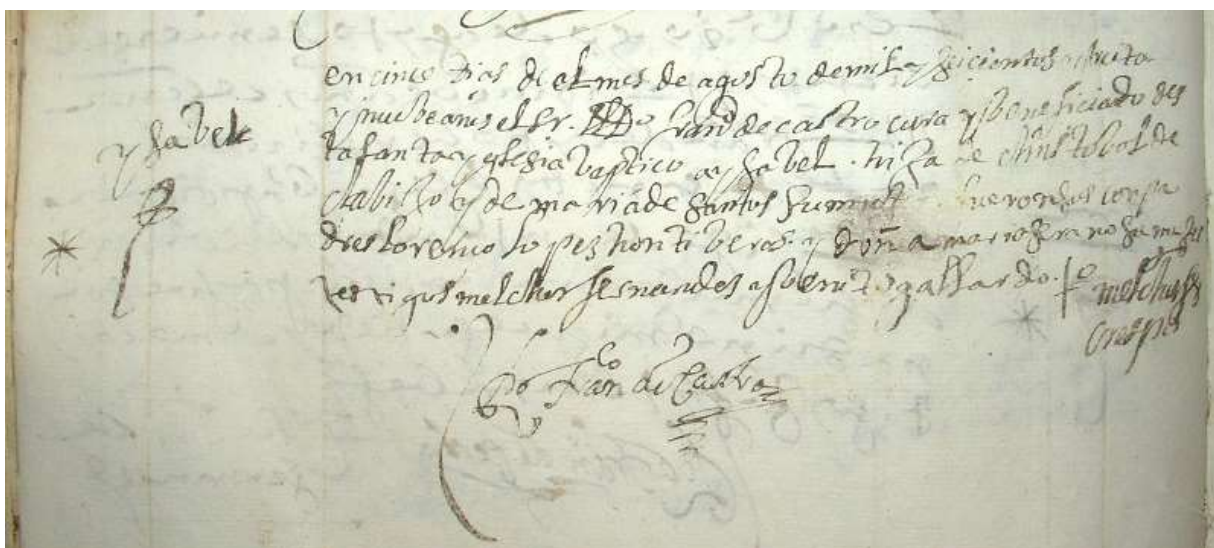 ysabel
en cinco dias del mes de agosto de mil y seicientos y treita
y nuebe años el sr. Ldo fran de castro cura y beneficiado des
ta santa yglesia baptico a ysabel. hiza de christobal de
clabijo y de maria de santos su mug fueron sus conpa
dres lorenso lopez hontiberos. y doña maria su muger
testigos melchor fernandes gallardo. fo melchor
crespo
Ldo Fran de Castro